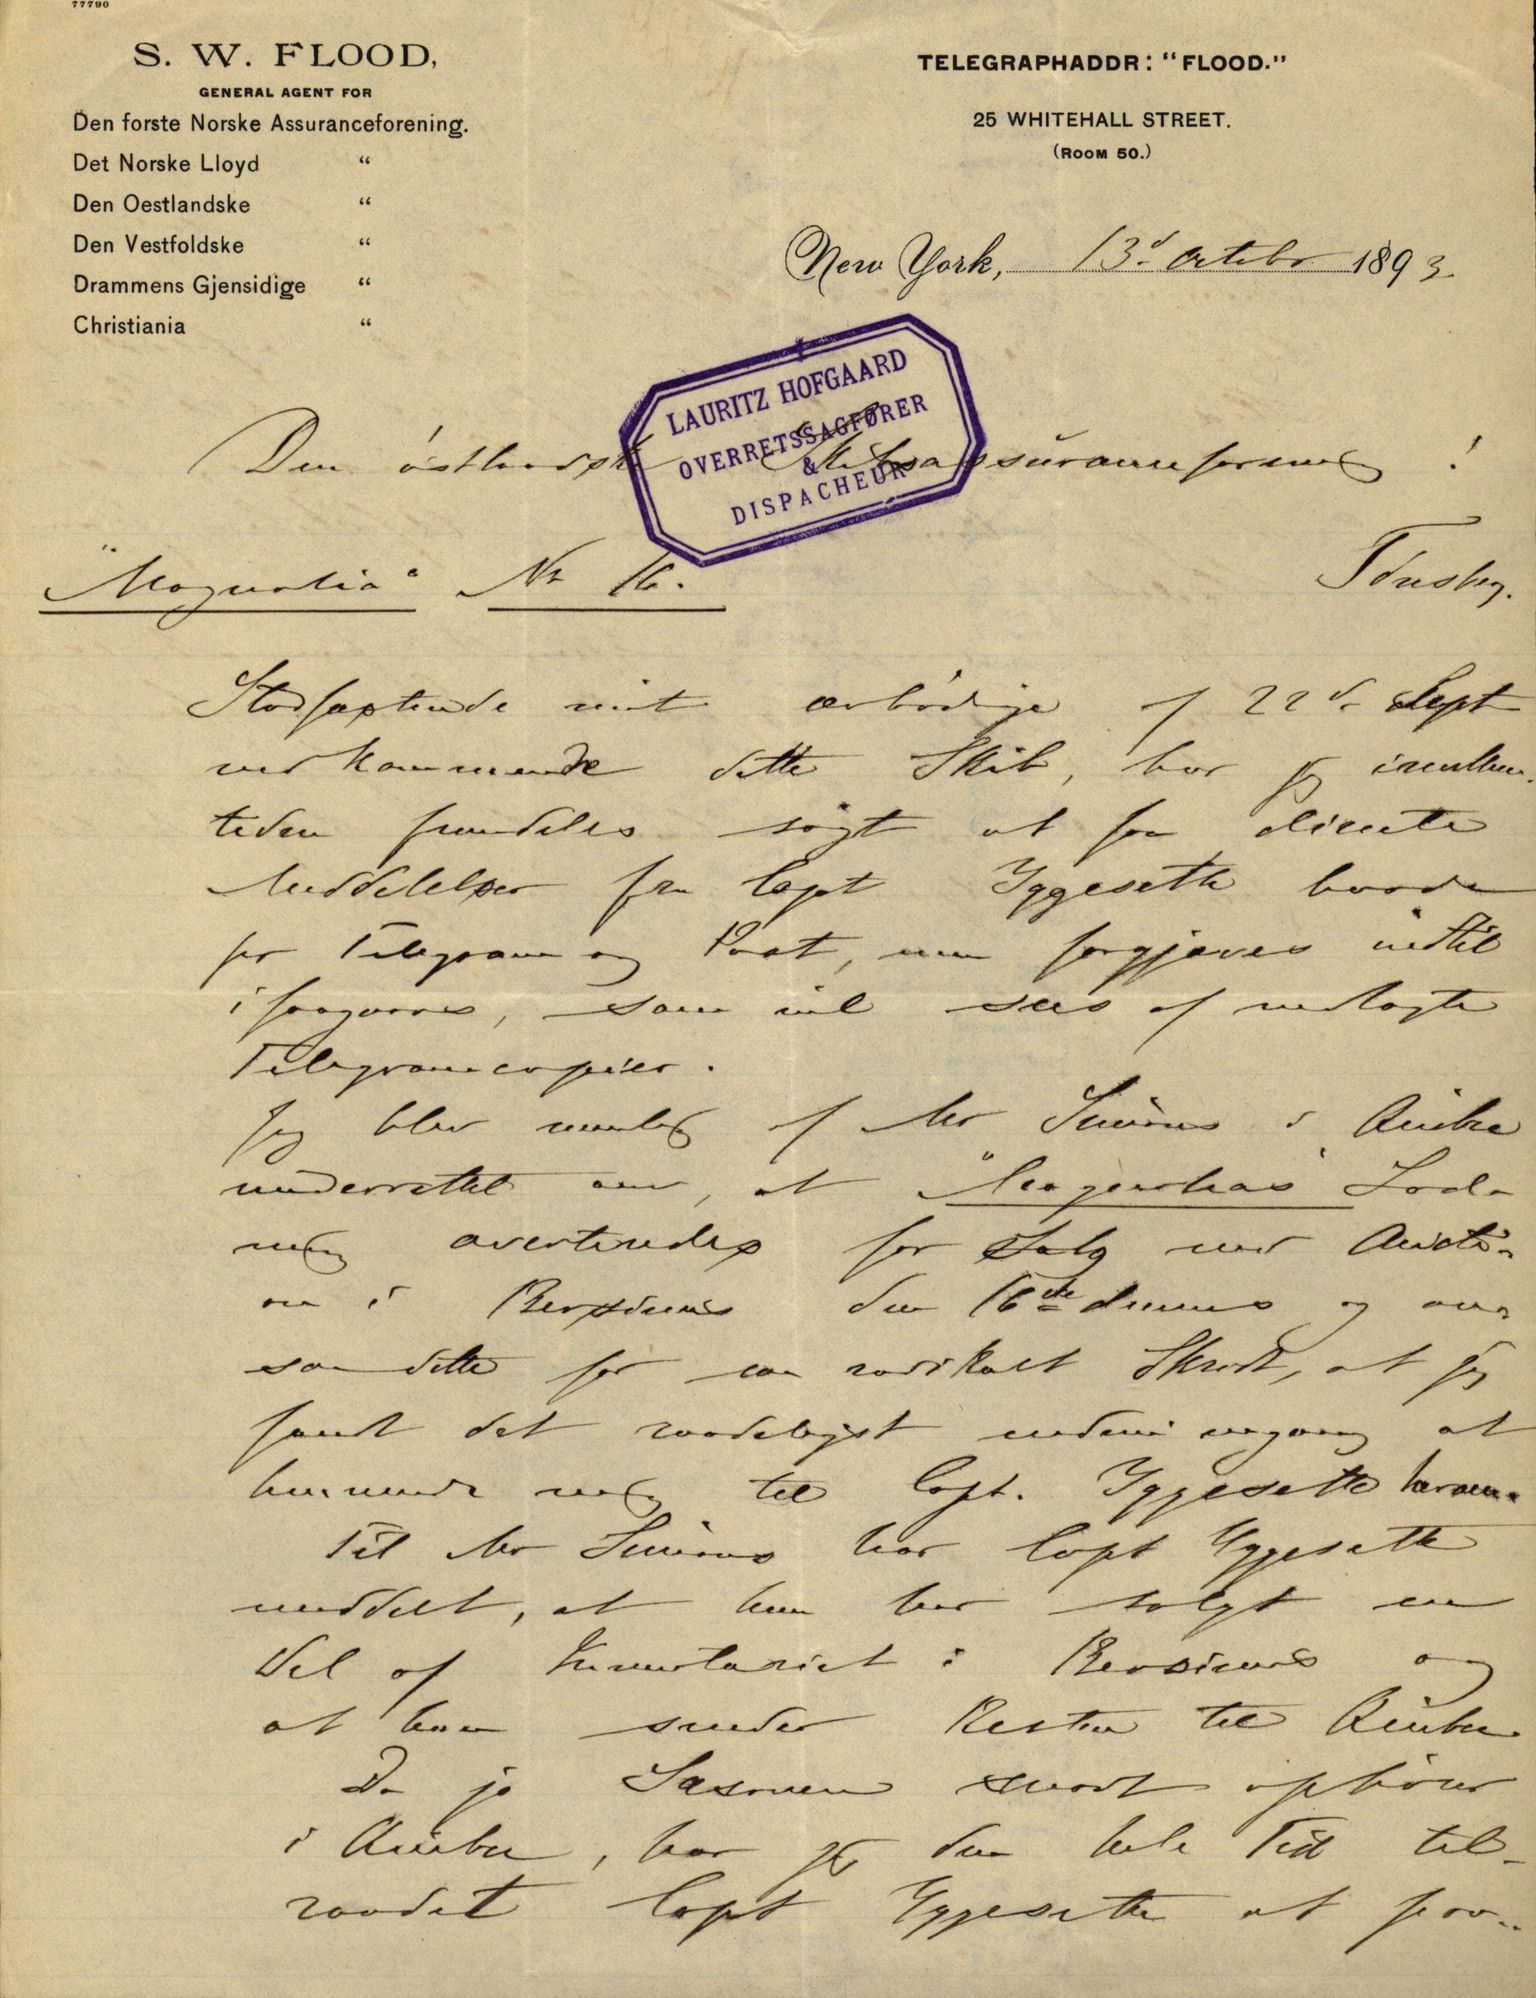 77790
S. W. FLOOD,
GENERAL AGENT FOR
Den forste Norske Assuranceforening.
Det Norske Lloyd "
Den Oestlandske "
Den Vestfoldske "
Drammens Gjensidige "
Christiania "
TELEGRAPHADDR: "FLOOD."
25 WHITEHALL STREET.
(ROOM 50.)
New York, 13d. October 1893.
LAURITZ HOFGAARD
OVERRETSSAGFØRER
&
DISPACHEUR
Den östlandske Skibsassuranceforening!
"Magnolia" No 16. Tönsberg.
Stadfæstende mit ærbödige af 22d. Sept
vedkommende dette Skib, har jeg imidler-
tiden fremdeles sögt at faa directe
Meddelelser fra Capt Yggeseth baade
pr Telegram og Post, men forgjæves indtil
iforgaars, som vil sees af vedlagte
Telegramcopier.
Jeg blev nemlig af Mr Simons i Quebec
underrettet om, at "Magnolias" Lad-
ning averteredes for Salg ved Aucti-
on i den 16de dennes og an-
saa dette for saa radikalt Skridt, at jeg
fandt det raadeligst endnu engang at
henvende mig til Capt. Yggeseth herom.
Til Mr Simons har Capt Yggeseth
meddelt, at han har solgt en
Del af Inventariet i og
at han sender Resten til Quebec.
Da jo Sæsonen snart ophörer
i Quebec, har jeg den hele Tid til-
raadet Capt Yggeseth at paa-